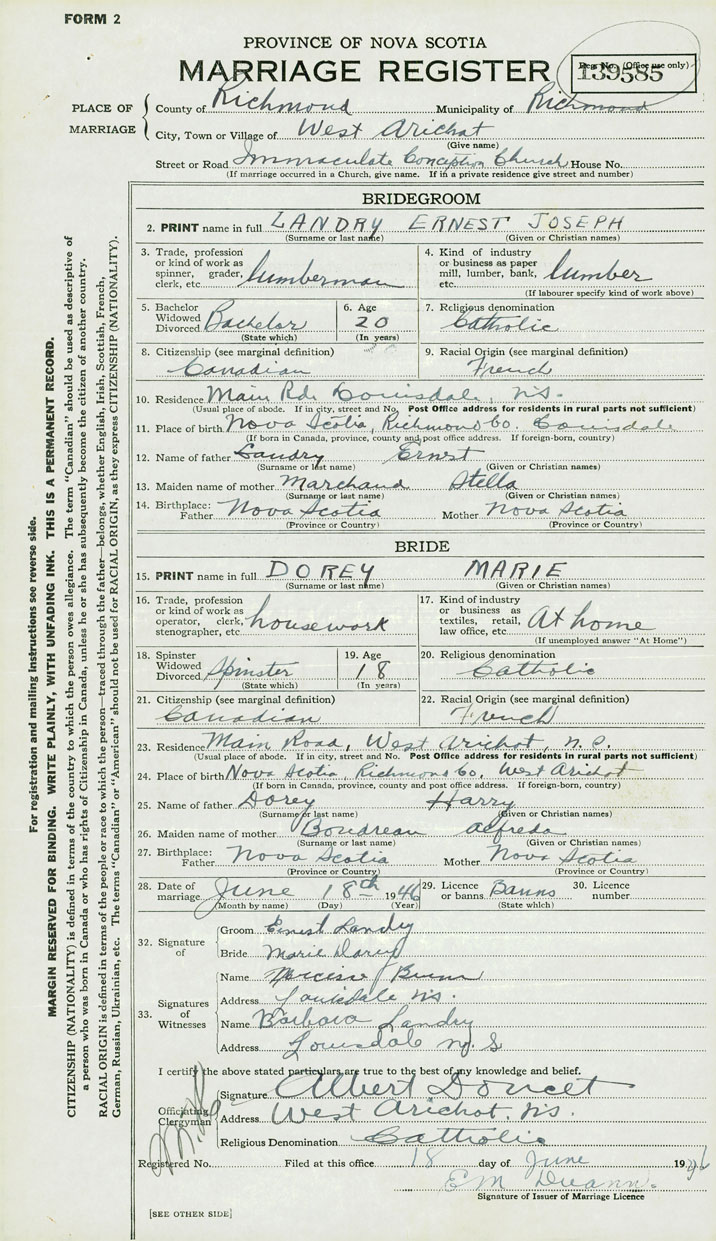 FORM 2
PROVINCE OF NOVA SCOTIA
MARRIAGE REGISTER
Reg. No. (Office use only)
139585
PLACE OF MARRIAGE
County of Richmond Municipality of Richmond
City, Town or Village of West Arichat
(Give name)
Street or Road Immaculate Conception Church House No.
(If marriage occurred in a Church, give name. If in a private residence give street and number)
BRIDEGROOM
2. PRINT name in full LANDRY ERNEST JOSEPH
(Surname or last name) (Given or Christian names)
3. Trade, profession or kind of work as spinner, grader, clerk, etc. lumberman
4. Kind of industry or business as paper mill, lumber, bank, etc. lumber
(If labourer specify kind of work above)
5. Bachelor Widowed Divorced Bachelor
(State which)
6. Age 20
(In years)
7. Religious denomination Catholic
8. Citizenship (see marginal definition) Canadian
9. Racial Origin (see marginal definition) French
10. Residence Main Rd. Louisdale, N.S.
(Usual place of abode. If in city, street and No. Post Office address for residents in rural parts not sufficient)
11. Place of birth Nova Scotia, Richmond Co. Louisdale
(If born in Canada, province, county and post office address. If foreign-born, country)
12. Name of father Landry Ernest
(Surname or last name) (Given or Christian names)
13. Maiden name of mother Marchand Stella
(Surname or last name) (Given or Christian names)
14. Birthplace: Father Nova Scotia Mother Nova Scotia
(Province or Country) (Province or Country)
BRIDE
15. PRINT name in full DOREY MARIE
(Surname or last name) (Given or Christian names)
16. Trade, profession or kind of work as operator, clerk, stenographer, etc. housework
17. Kind of industry or business as textiles, retail, law office, etc. At home
(If unemployed answer "At Home")
18. Spinster Widowed Divorced Spinster
(State which)
19. Age 18
(In years)
20. Religious denomination Catholic
21. Citizenship (see marginal definition) Canadian
22. Racial Origin (see marginal definition) French
23. Residence Main Road, West Arichat, N.S.
(Usual place of abode. If in city, street and No. Post Office address for residents in rural parts not sufficient)
24. Place of birth Nova Scotia, Richmond Co, West Arichat
(If born in Canada, province, county and post office address. If foreign-born, country)
25. Name of father Dorey Harry
(Surname or last name) (Given or Christian names)
26. Maiden name of mother Boudreau Alfreda
(Surname or last name) (Given or Christian names)
27. Birthplace: Father Nova Scotia Mother Nova Scotia
(Province or Country) (Province or Country)
28. Date of marriage June 18th 1946
(Month by name) (Day) (Year)
29. Licence or banns Banns
(State which)
30. Licence number
32. Signature of
Groom Ernest Landry
Bride Marie Dorey
33. Signatures of Witnesses
Name
Address Louisdale N.S.
Name Barbara Landry
Address Louisdale N.S
I certify the above stated particulars are true to the best of my knowledge and belief.
Officiating Clergyman
Signature Albert Doucet
Address West Arichat, N.S.
Religious Denomination Catholic
Registered No. Filed at this office 18 day of June 1946
E M
Signature of Issuer of Marriage Licence
[SEE OTHER SIDE]
For registration and mailing instructions see reverse side.
MARGIN RESERVED FOR BINDING. WRITE PLAINLY, WITH UNFADING INK. THIS IS A PERMANENT RECORD.
CITIZENSHIP (NATIONALITY) is defined in terms of the country to which the person owes allegiance. The term "Canadian" should be used as descriptive of
a person who was born in Canada or who has rights of Citizenship in Canada, unless he or she has subsequently become the citizen of another country.
RACIAL ORIGIN is defined in terms of the people or race to which the person—traced through the father—belongs, whether English, Irish, Scottish, French,
German, Russian, Ukrainian, etc. The terms "Canadian" or "American" should not be used for RACIAL ORIGIN, as they express CITIZENSHIP (NATIONALITY).